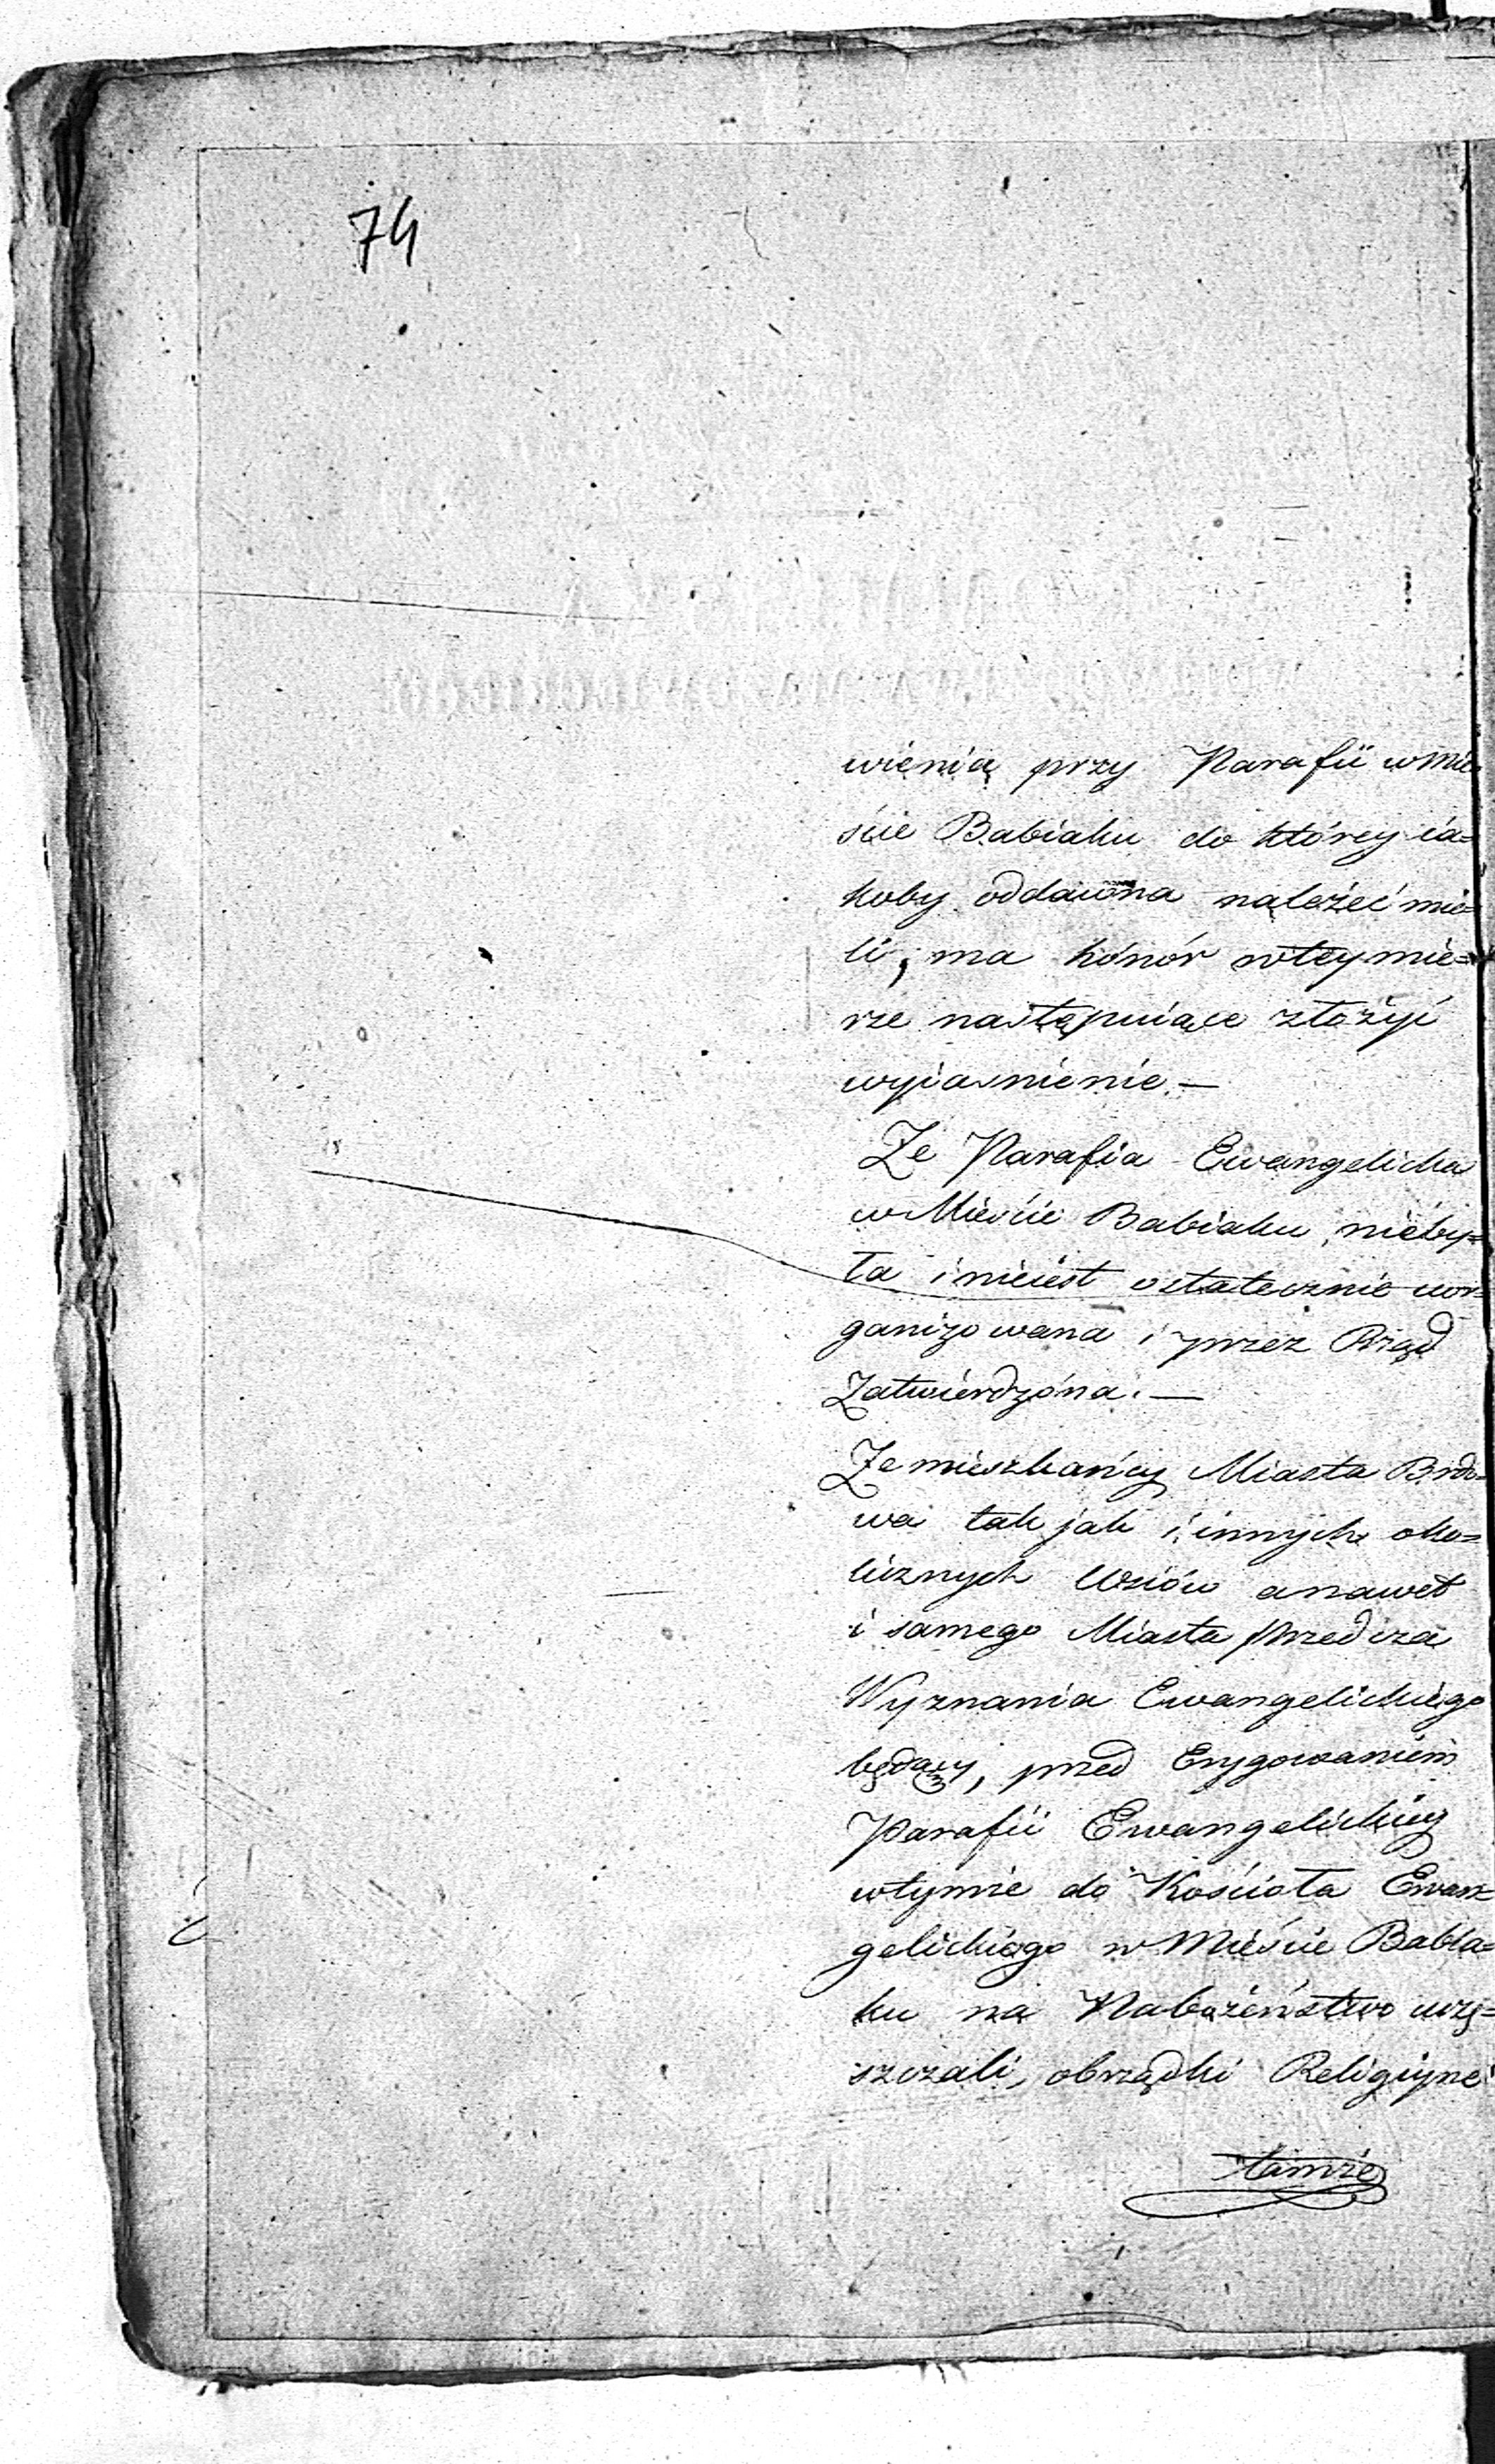 74
wienia przy Parafii w Mie=
ście Babiaku do którey ia=
koby oddawna należeć mie=
li, ma honór w tey mie=
rze następuiące złożyć
wyiasnienie.—
Że Parafia Ewangelicka
w Mieście Babiaku nieby=
ła i nieiest ostatecznie uor=
ganizowana i przez Rząd
Zatwierdzona.—
Że mieszkańcy Miasta Brdo=
wa tak jak i innych oko=
licznych Wsiów a nawet
i samego Miasta Przedcza
Wyznania Ewangelickiego
będący, przed Erygowaniem
Parafii Ewangelickiey
w tymże do Kościoła Ewan=
gelickiego w Mieście Babia=
ku na Nabożeństwo uczę=
szczali, obrządki Religiyne
tamże